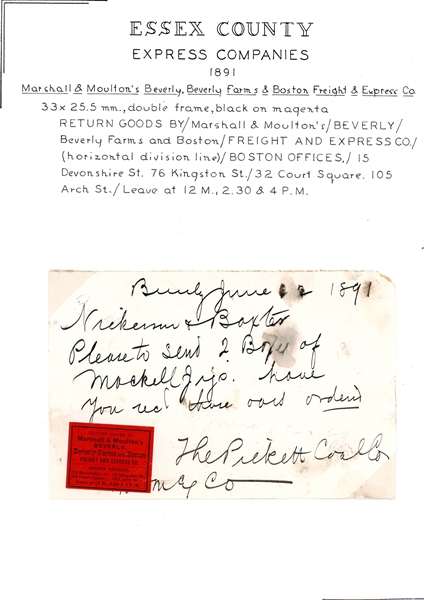 ESSEX COUNTY
EXPRESS COMPANIES
1891
Marshall & Moulton's Beverly, Beverly Farms & Boston Freight & Express Co
33 x 25.5 mm., double frame, black on magenta
RETURN GOODS BY/Marshall & Moulton's/BEVERLY/
Beverly Farms and Boston/FREIGHT AND EXPRESS CO./
(horizontal division line)/BOSTON OFFICES./15
Devonshire St. 76 Kingston St./32 Court Square. 105
Arch St./Leave at 12 M., 2.30 & 4 P.M.
June 1891
Nickerson & Baxter
Please to send 2 of
have
you rec these oars ordered
The Pickett Coal Co
RETURN GOODS BY
Marshall & Moulton's
BEVERLY,
Beverly Farms AND Boston
FREIGHT AND EXPRESS CO.
BOSTON OFFICES:
Co